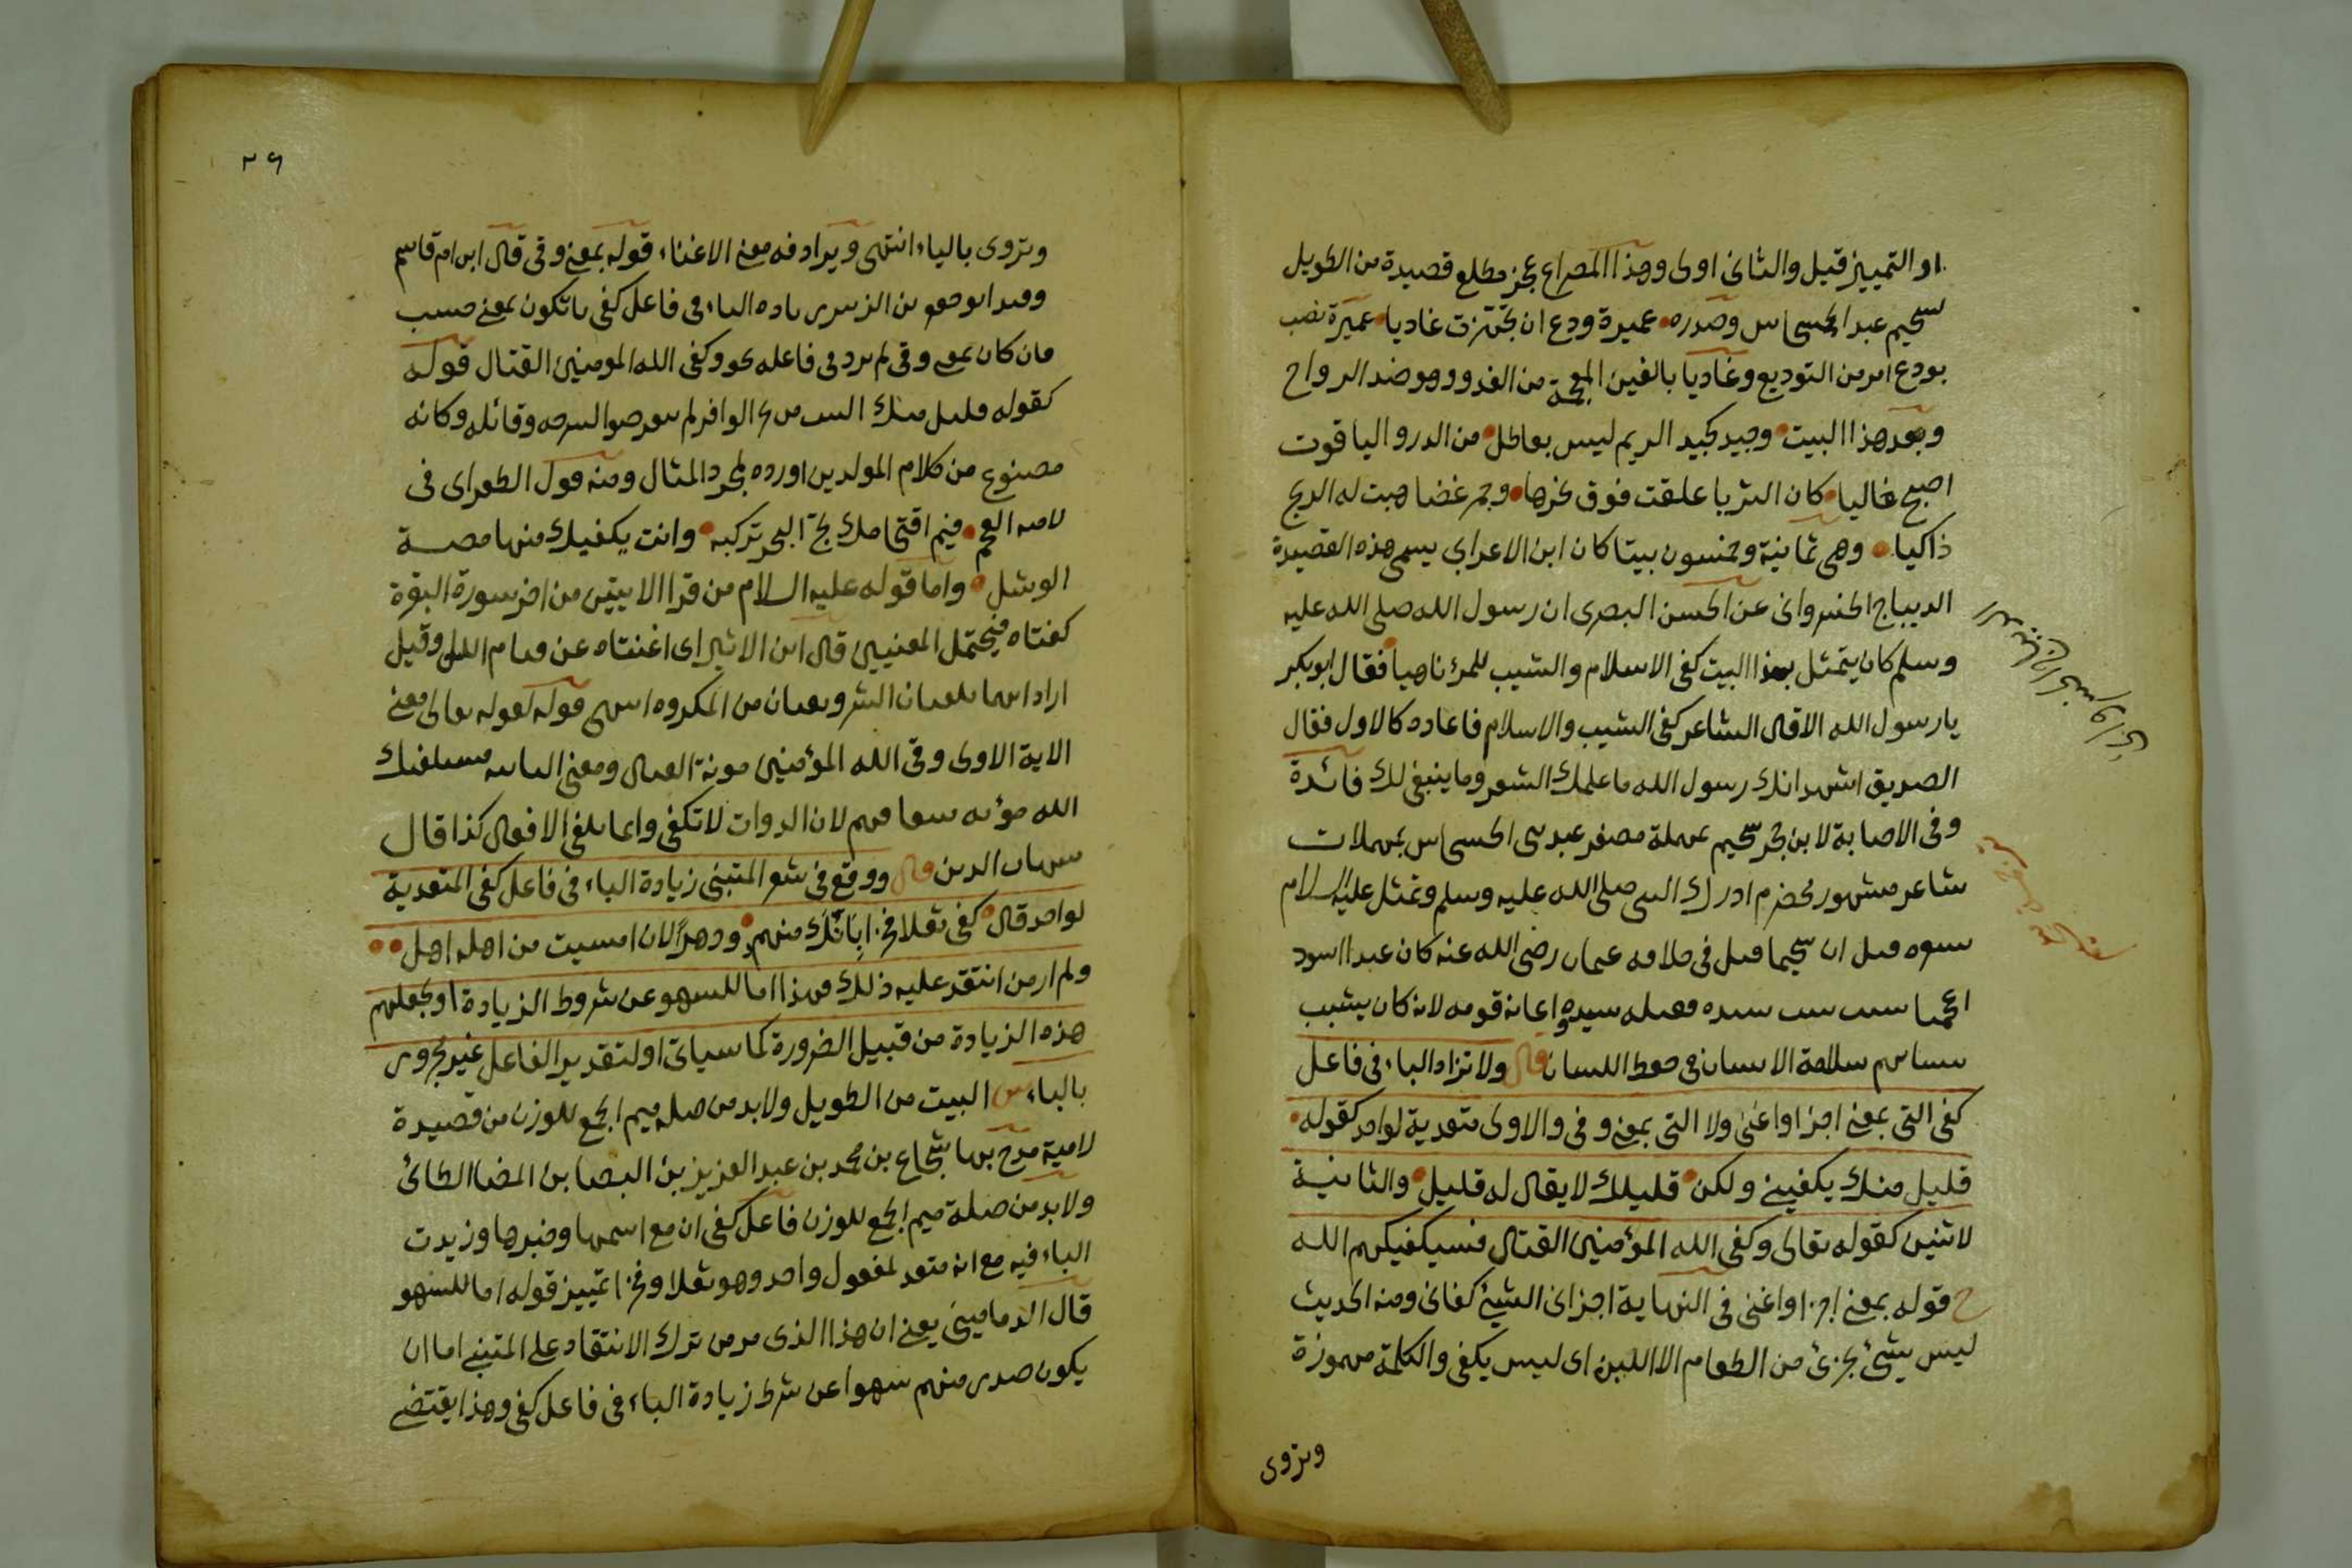 او التمييز قيل والثانى اولى وهذا المصراع عجز مطلع قصيدة من الطويل
لسحيم عبد الحسحاس وصدره عميرة ودع ان تجهزت غاديا عميرة نصب
بودع امر من التوديع وغاديا بالغين المعجمة من الغدو وهو ضد الرواح
وبعد هذا البيت وجيد كجيد الريم ليس بعاطل من الدر والياقوت
اصبح غاليا كان الثريا علقت فوق نحرها وجمر غضا هبت له الريح
ذاكيا وهى ثمانية وخمسون بيتا كان ابن الاعرابي يسمى هذه القصيدة
الديباج الخسروانى عن الحسن البصرى ان رسول الله صلى الله عليه
وسلم كان يتمثل بهذا البيت كفى الاسلام والشيب للمرء ناهيا فقال ابو بكر
يا رسول الله الا قال الشاعر كفى الشيب والاسلام فاعاده كالاول فقال
الصديق اشهد انك رسول الله ما علمك الشعر وما ينبغى لك فائدة
وفى الاصابة لابن حجر سحيم بمهملة مصغر عبد بنى الحسحاس بمهملات
شاعر مشهور مخضرم ادرك النبى صلى الله عليه وسلم وتمثل عليه السلام
قتل ان سحيما قتل فى خلافه عثمان رضى الله عنه كان عبدا اسود
سيده واعانه قومه لانه كان يشبب
بنسائهم سلامة الانسان فى حفظ اللسان قال ولا تزاد الباء فى فاعل
كفى التى بمعنى اجزا واغنى ولا التى بمعنى وفى والاولى متعدية لواحد كقوله
قليل منك يكفينى ولكن قليلك لا يقال له قليل والثانية
لاثنين كقوله تعالى وكفى الله المؤمنين القتال فسيكفيكهم الله
ح قوله بمعنى اجزا واغنى فى النهاية اجزانى الشيئ كفانى ومنه الحديث
ليس شيئ يجزئ من الطعام الا اللبن اى ليس يكفى والكلمة مهموزة
وتروى
٢٦
وتروى بالياء انتهى ويرادفه معنى الاغناء قوله بمعنى وقى قال ابن ام قاسم
زياده الباء فى فاعل كفى بان تكون بمعنى حسب
فان كان بمعنى وقى لم يزد فى فاعله نحو وكفى الله المومنين القتال قوله
كقوله قليل منك البيت من الوافر لم وقائله وكانه
مصنوع من كلام المولدين اورده لمجرد المثال ومنه قول الطغراى فى
لاميه العجم فيم اقتحامك لج البحر تركبه وانت يكفيك منها مصة
الوشل واما قوله عليه السلام من قرا الايتين من اخر سورة البقرة
كفتاه فيحتمل المعنيين قال ابن الاثير اى اغنتاه عن قيام الليل وقيل
اراد انهما تكفيان الشر وتقيان من المكروه انتهى قوله لقوله تعالى معنى
الاية الاولى وقى الله المؤمنين مونة القتال ومعنى الثانيه فسيكفيك
الله مؤنه لان الذوات لا تكفى وانما تكفى الافعال كذا قال
شهاب الدين قال ووقع فى شعر المتنبى زيادة الباء فى فاعل كفى المتعدية
لواحد قال كفى ثعلا فخرا بأنك منهم ودهرا لان امسيت من اهله اهل
ولم ار من انتقد عليه ذلك فهذا اما للسهو عن شروط الزيادة او لجعلهم
هذه الزيادة من قبيل الضرورة كما سياتى او لتقدير الفاعل غير مجرور
بالباء ش البيت من الطويل ولا بد من صله ميم الجمع للوزن من قصيدة
لامية مدح بها شجاع بن محمد بن عبد العزيز بن المضا الطائى
ولا بد من صلة ميم الجمع للوزن فاعل كفى ان مع اسمها وخبرها وزيدت
الباء فيه مع انه متعد لمفعول واحد وهو ثعلا وفخرا تمييز قوله اما للسهو
قال الدمامينى يعنى ان هذا الذى مر من ترك الانتقاد على المتنبى اما ان
يكون صدر منهم سهوا عن شرط زيادة الباء فى فاعل كفى وهذا يقتضى